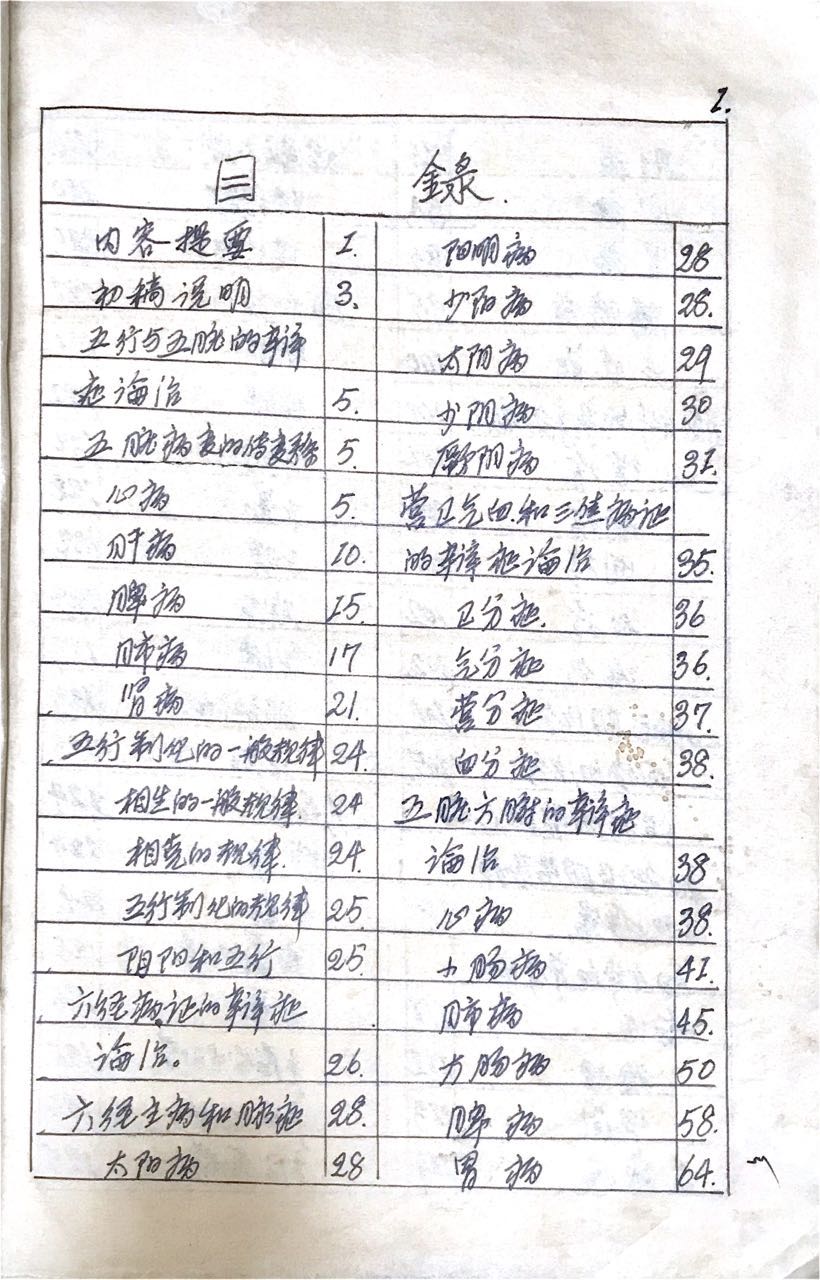 1.
目 錄.
内容提要 1.
初稿说明 3.
五行与五脏的辩译
症論治 5.
五脏病变的传变 5.
心病 5.
肝病 10.
脾病 15.
肺病 17
肾病 21.
五行制化的一般规律 24.
相生的一般规律. 24
相克的规律. 24.
五行制化的规律 25.
阴阳和五行 25.
六经病证的辩译症
論治。 26.
六经主病和脉症 28.
太阳病 28
阳明病 28
少阳病 28.
太阴病 29
少阴病 30
厥阴病 31.
营卫气血.和三焦病证
的辩译症論治 35.
卫分症. 36
气分症 36.
营分症 37.
血分症 38.
五脏六腑的辩译症
論治 38
心病 38.
小肠病 41.
肺病 45.
大肠病 50
脾病 58.
胃病 64.